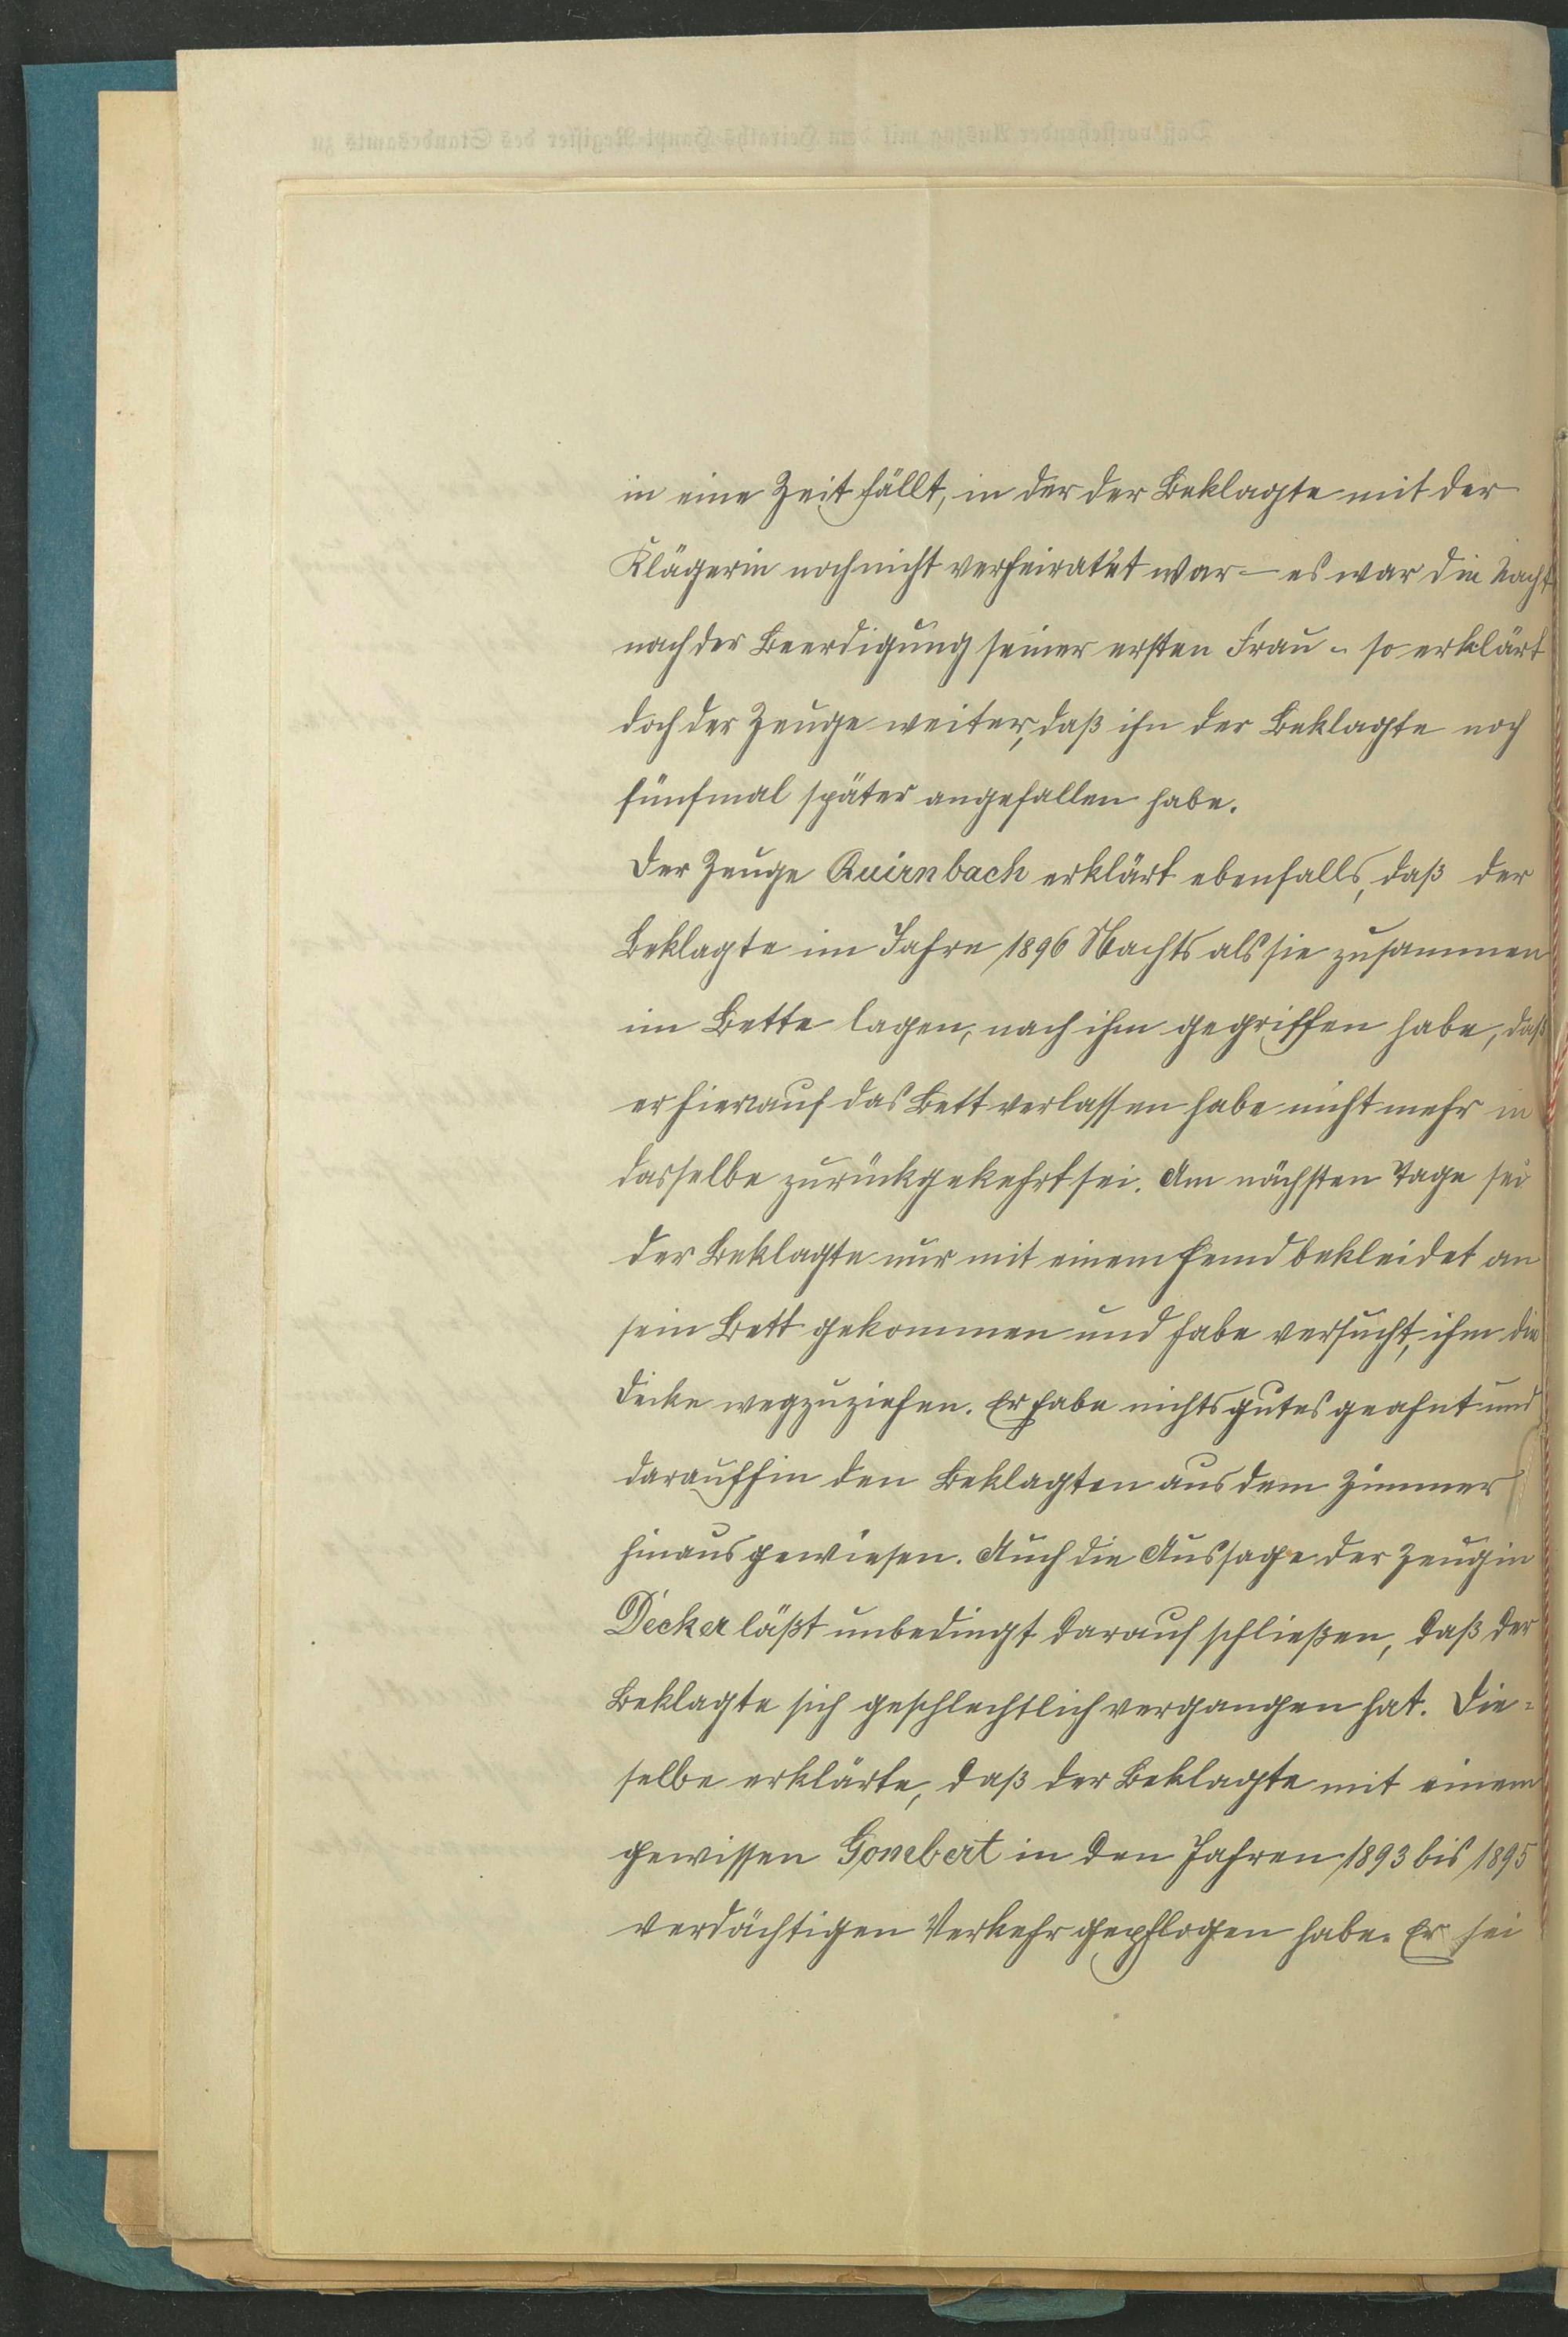 Daß vorstehender Auszug mit dem Heiraths-Haupt-Register des Standesamts zu
in eine Zeit fällt, in der der Beklagte mit der
Klägerin noch nicht verheiratet war – es war die Nacht
nach der Beerdigung seiner ersten Frau – so erklärt
doch der Zeuge weiter, daß ihn der Beklagte noch
fünfmal später angefallen habe.
Der Zeuge Quirnbach erklärt ebenfalls, daß der
Beklagte im Jahre 1896 Nachts als sie zusammen
im Bette lagen, nach ihm gegriffen habe, daß
er hierauf das Bett verlassen habe nicht mehr in
dasselbe zurückgekehrt sei. Am nächsten Tage sei
der Beklagte nur mit einem Hemd bekleidet an
sein Bett gekommen und habe versucht, ihm die
Decke wegzuziehen. Er habe nichts gutes geahnt und
daraufhin den Beklagten aus dem Zimmer
hinausgewiesen. Auch die Aussage der Zeugin
Decker läßt unbedingt darauf schließen, daß der
Beklagte sich geschlechtlich vergangen hat. Die=
selbe erklärte, daß der Beklagte mit einem
gewissen Gombert in den Jahren 1893 bis 1895
verdächtigen Verkehr gepflogen habe. Er sei